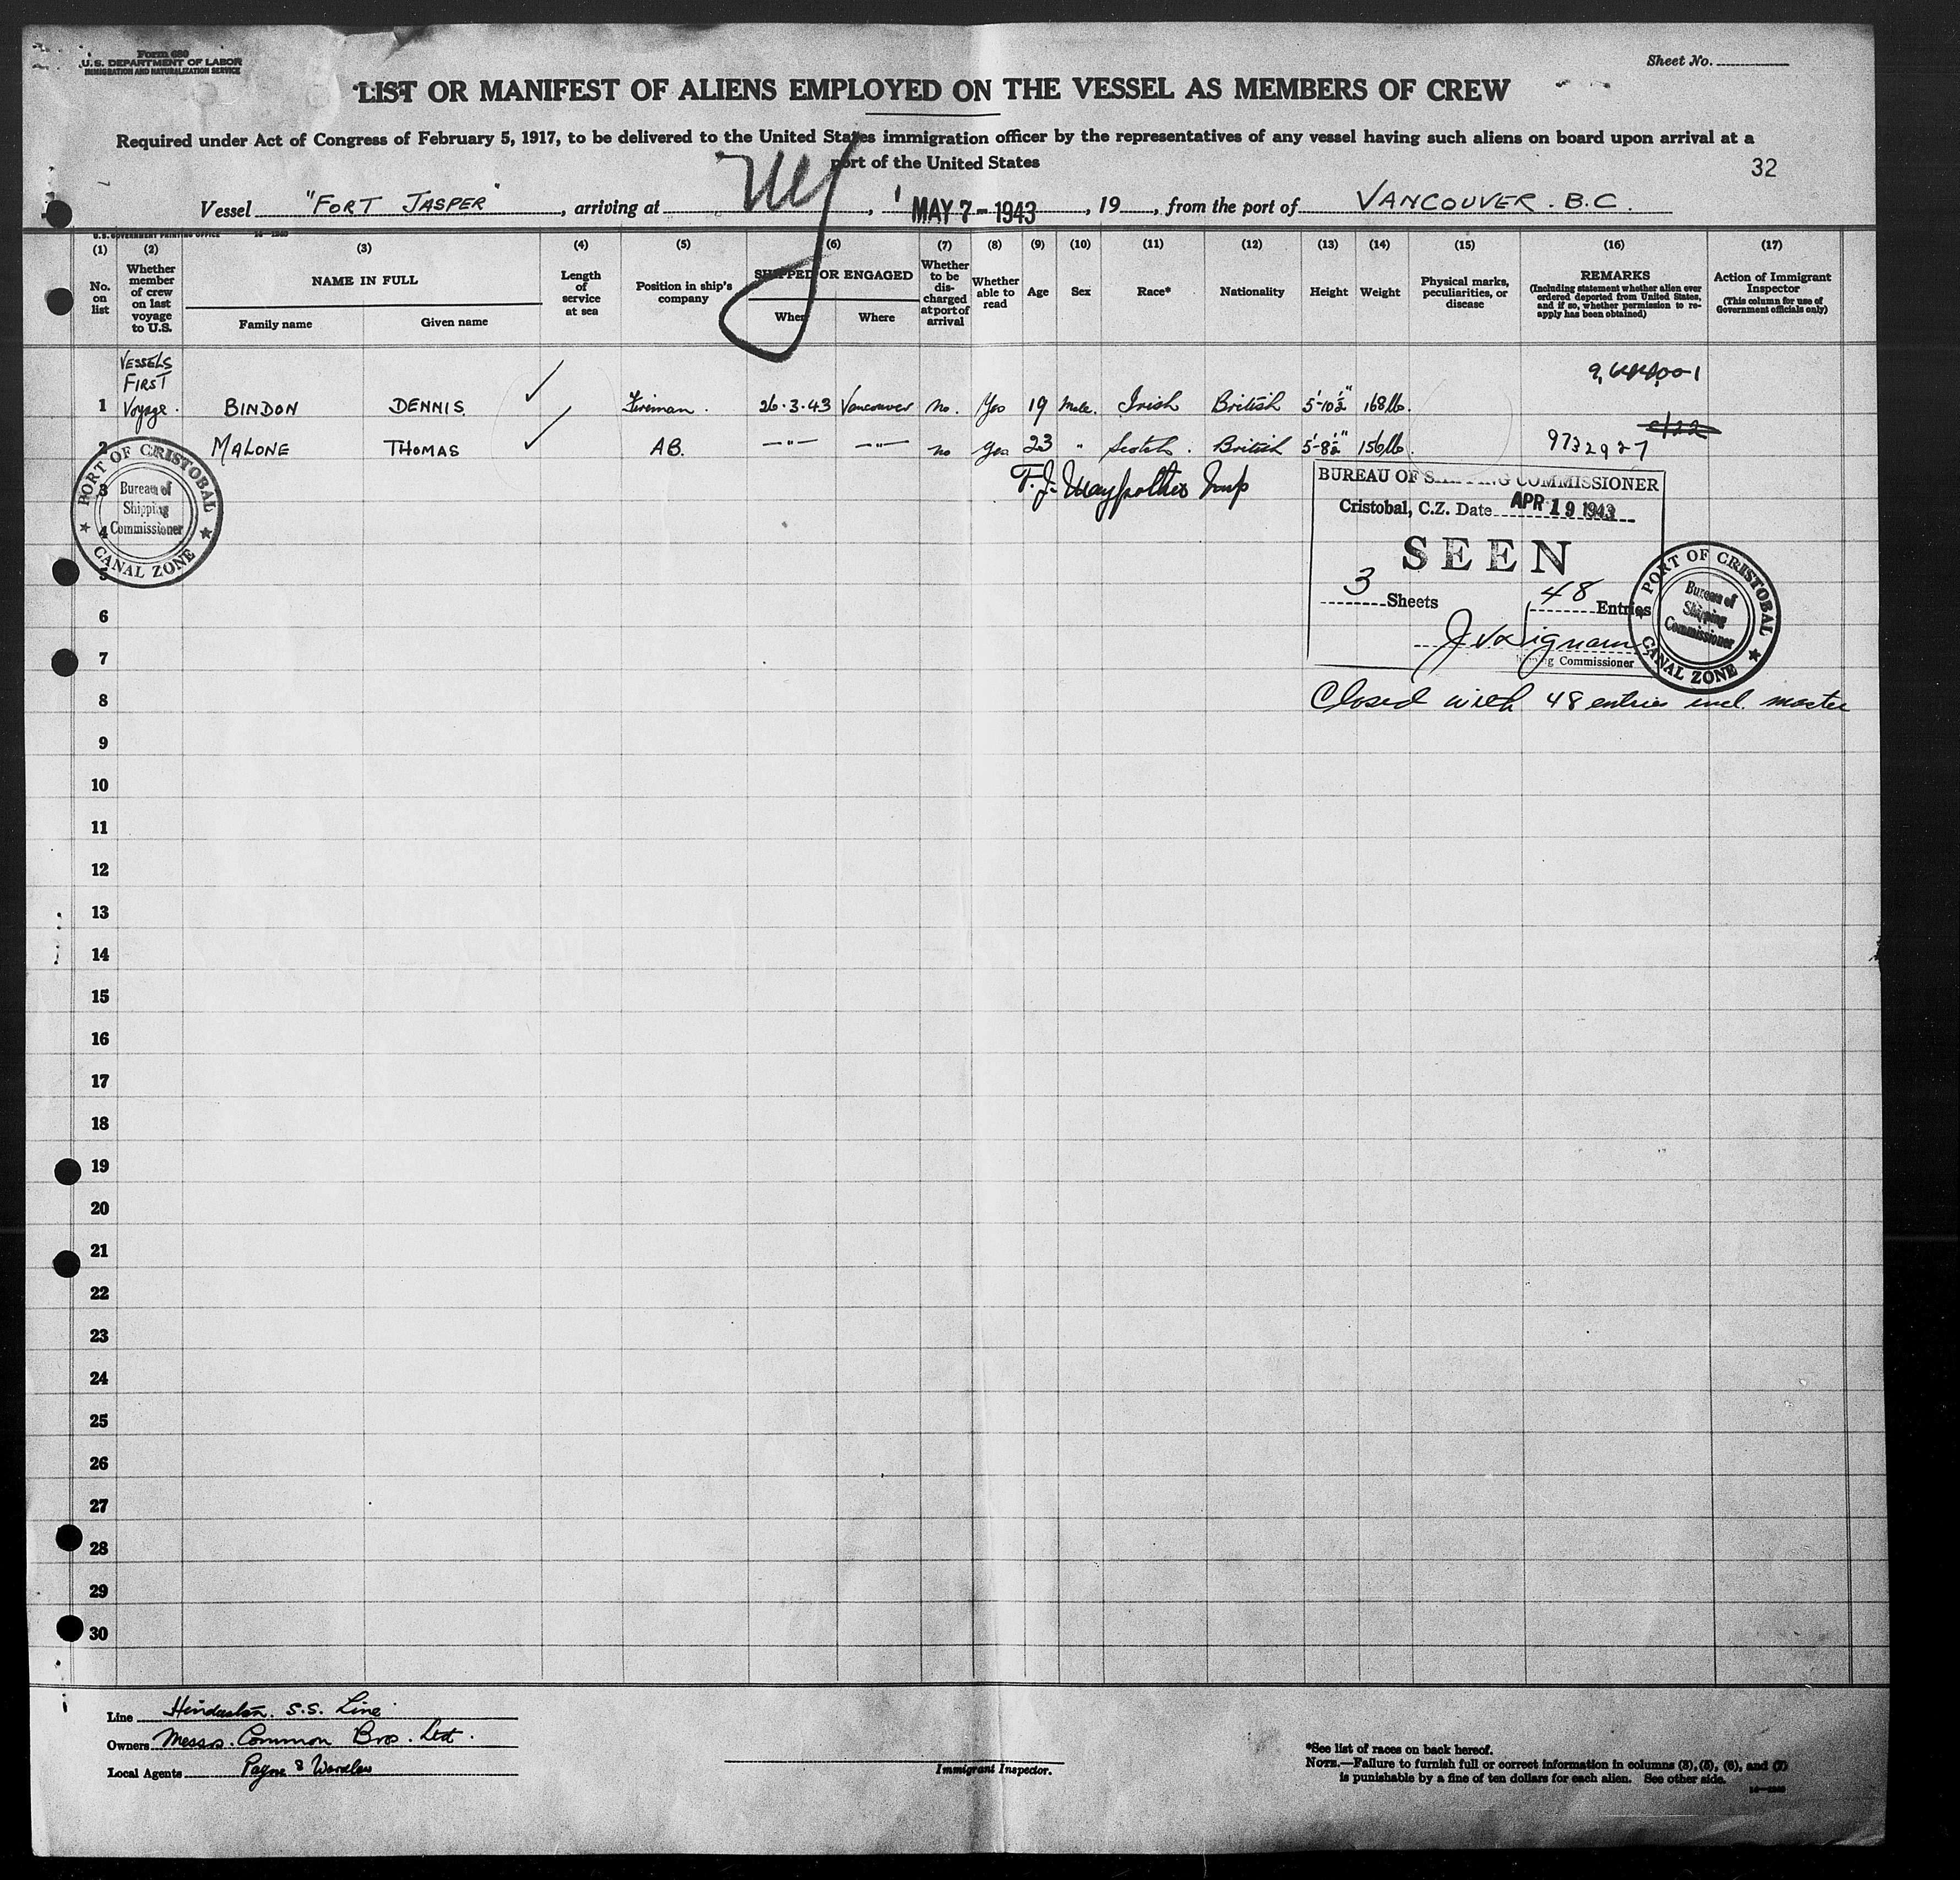 Form 680
U.S. DEPARTMENT OF LABOR
IMMIGRATION AND NATURALIZATION SERVICE
Sheet No.
LIST OR MANIFEST OF ALIENS EMPLOYED ON THE VESSEL AS MEMBERS OF CREW
Required under Act of Congress of February 5, 1917, to be delivered to the United States immigration officer by the representatives of any vessel having such aliens on board upon arrival at a
port of the United States
32
Vessel "FORT JASPER", arriving at NY, MAY 7-1943, 19, from the port of VANCOUVER. B.C.
U.S. GOVERNMENT PRINTING OFFICE
(1) (2) (3) (4) (5) (6) (7) (8) (9) (10) (11) (12) (13) (14) (15) (16) (17)
No. on list
Whether member of crew on last voyage to U.S.
NAME IN FULL
Family name Given name
Length of service at sea
Position in ship's company
SHIPPED OR ENGAGED
When Where
Whether to be discharged at port of arrival
Whether able to read
Age
Sex
Race*
Nationality
Height
Weight
Physical marks, peculiarities, or disease
REMARKS
(Including statement whether alien ever ordered deported from United States, and if so, whether permission to reapply has been obtained)
Action of Immigrant Inspector
(This column for use of Government officials only)
VESSELS
FIRST
1 Voyage. BINDON DENNIS. Fireman. 26.3.43 Vancouver no. Yes 19 Male. Irish British 5'-10½" 168 lb.
2 MALONE THOMAS AB. —"— —"— no Yes 23 " Scotch. British 5'-8½" 156 lb. 9732927
PORT OF CRISTOBAL
Bureau of
Shipping
Commissioner
CANAL ZONE
BUREAU OF SHIPPING COMMISSIONER
Cristobal, C.Z. Date APR 19 1943
SEEN
3 Sheets 48 Entries
Shipping Commissioner
PORT OF CRISTOBAL
Bureau of
Shipping
Commissioner
CANAL ZONE
Closed with 48 entries incl. master
3
4
5
6
7
8
9
10
11
12
13
14
15
16
17
18
19
20
21
22
23
24
25
26
27
28
29
30
Line Hindustan. S.S. Line
Owners Messrs. Common Bros. Ltd.
Local Agents Payne & Wardlaw
Immigrant Inspector.
*See list of races on back hereof.
NOTE.—Failure to furnish full or correct information in columns (3), (5), (6), and (7)
is punishable by a fine of ten dollars for each alien. See other side.